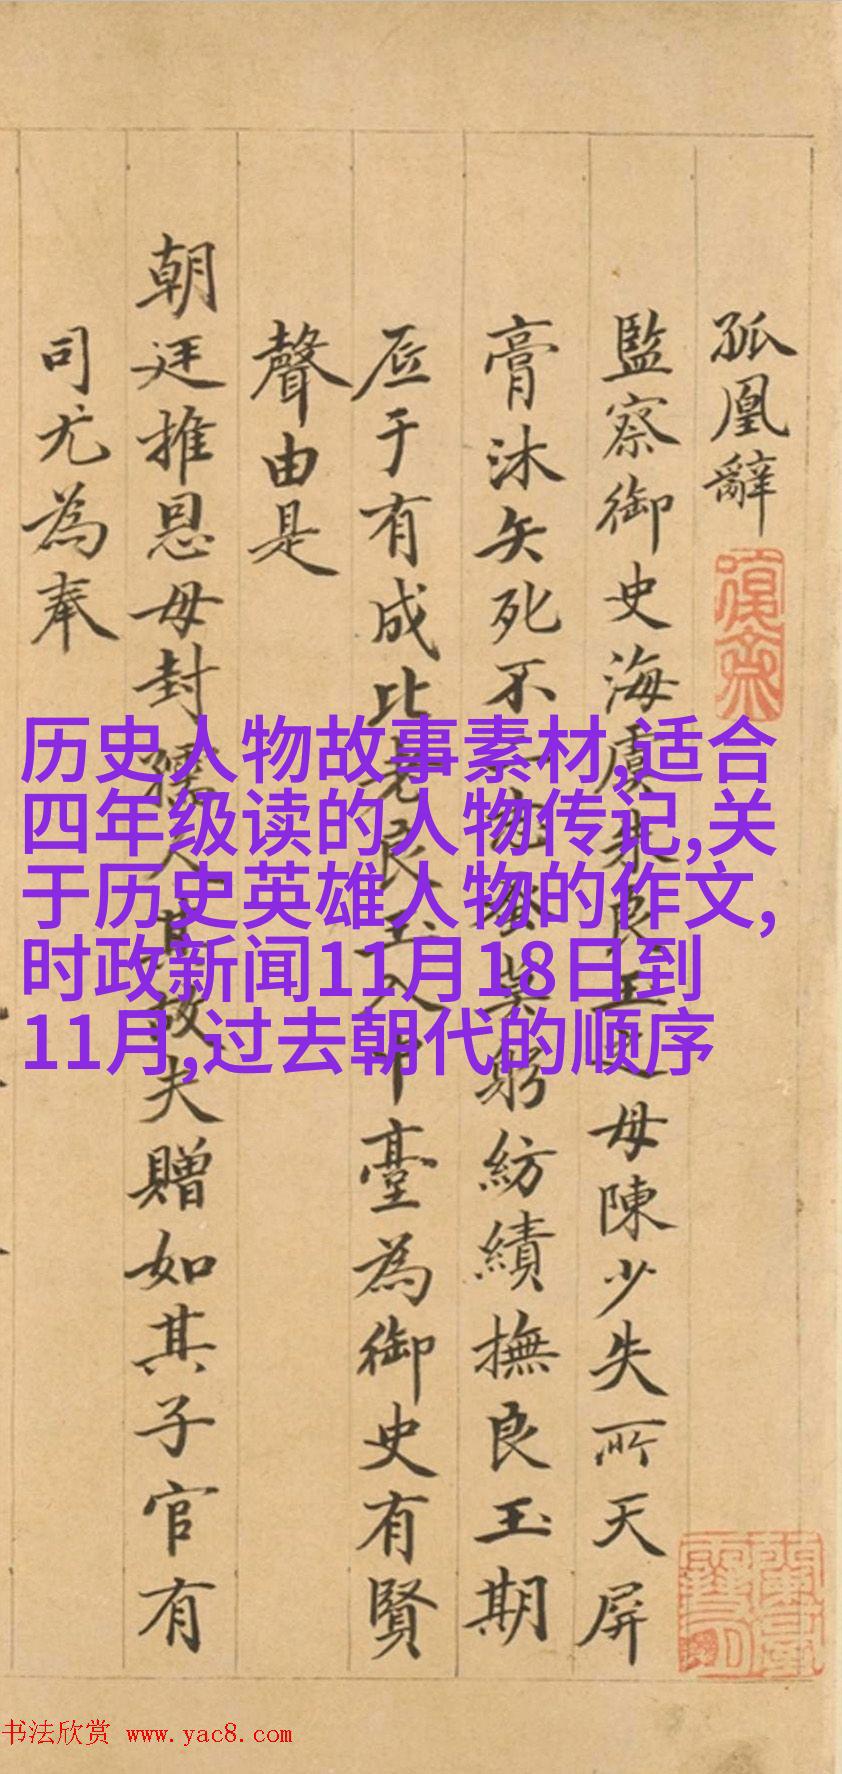 孤凰辭
監察御史海虞朱良玉之母陳少失所天屏
膏沐矢死不躬紡績撫良玉期
底于有成比老良玉入中臺為御史有賢
聲由是
朝廷推恩母封孺人其故夫贈如其子官有
司尤為奉
历史人物故事素材,适合
四年级读的人物传记,关
于历史英雄人物的作文,
时政新闻11月18日到
11月,过去朝代的顺序
书法欣赏 www.yac8.com